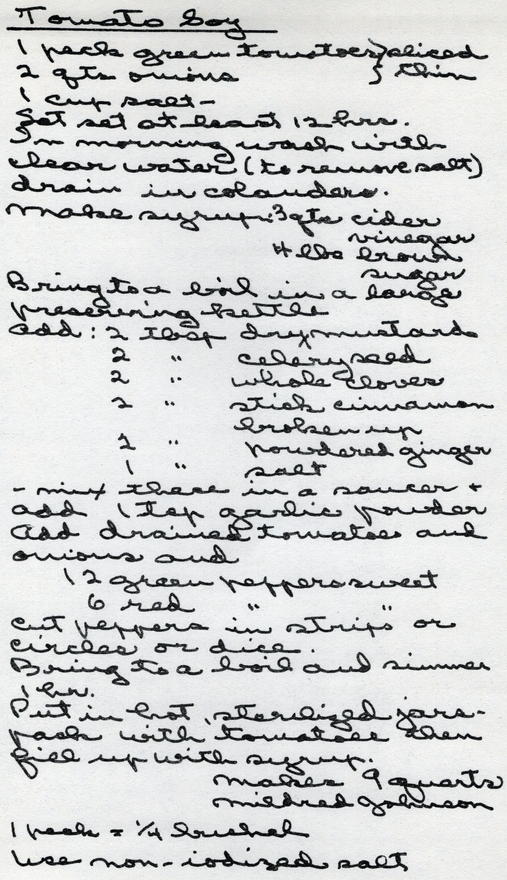 Tomato Soy
1 peck green tomatoes } sliced
2 qts onions } thin
1 cup salt -
Let set at least 12 hrs.
In morning wash with
clear water (to remove salt)
drain in colanders.
Make syrup: 3 qts cider
vinegar
4 lbs brown
sugar
Bring to a boil in a large
preserving kettle
add: 2 tbsp dry mustard
2 " celery seed
2 " whole cloves
2 " stick cinnamon
broken up
2 " powdered ginger
1 " salt
- mix these in a saucer +
add 1 tsp garlic powder
Add drained tomatoes and
onions and
12 green peppers sweet
6 red " "
cut peppers in strips or
circles or dice.
Bring to a boil and simmer
1 hr.
Put in hot, sterilized jars -
pack with tomatoes then
fill up with syrup.
Makes 9 quarts
Mildred Johnson
1 peck = 1/4 bushel
Use non-iodized salt